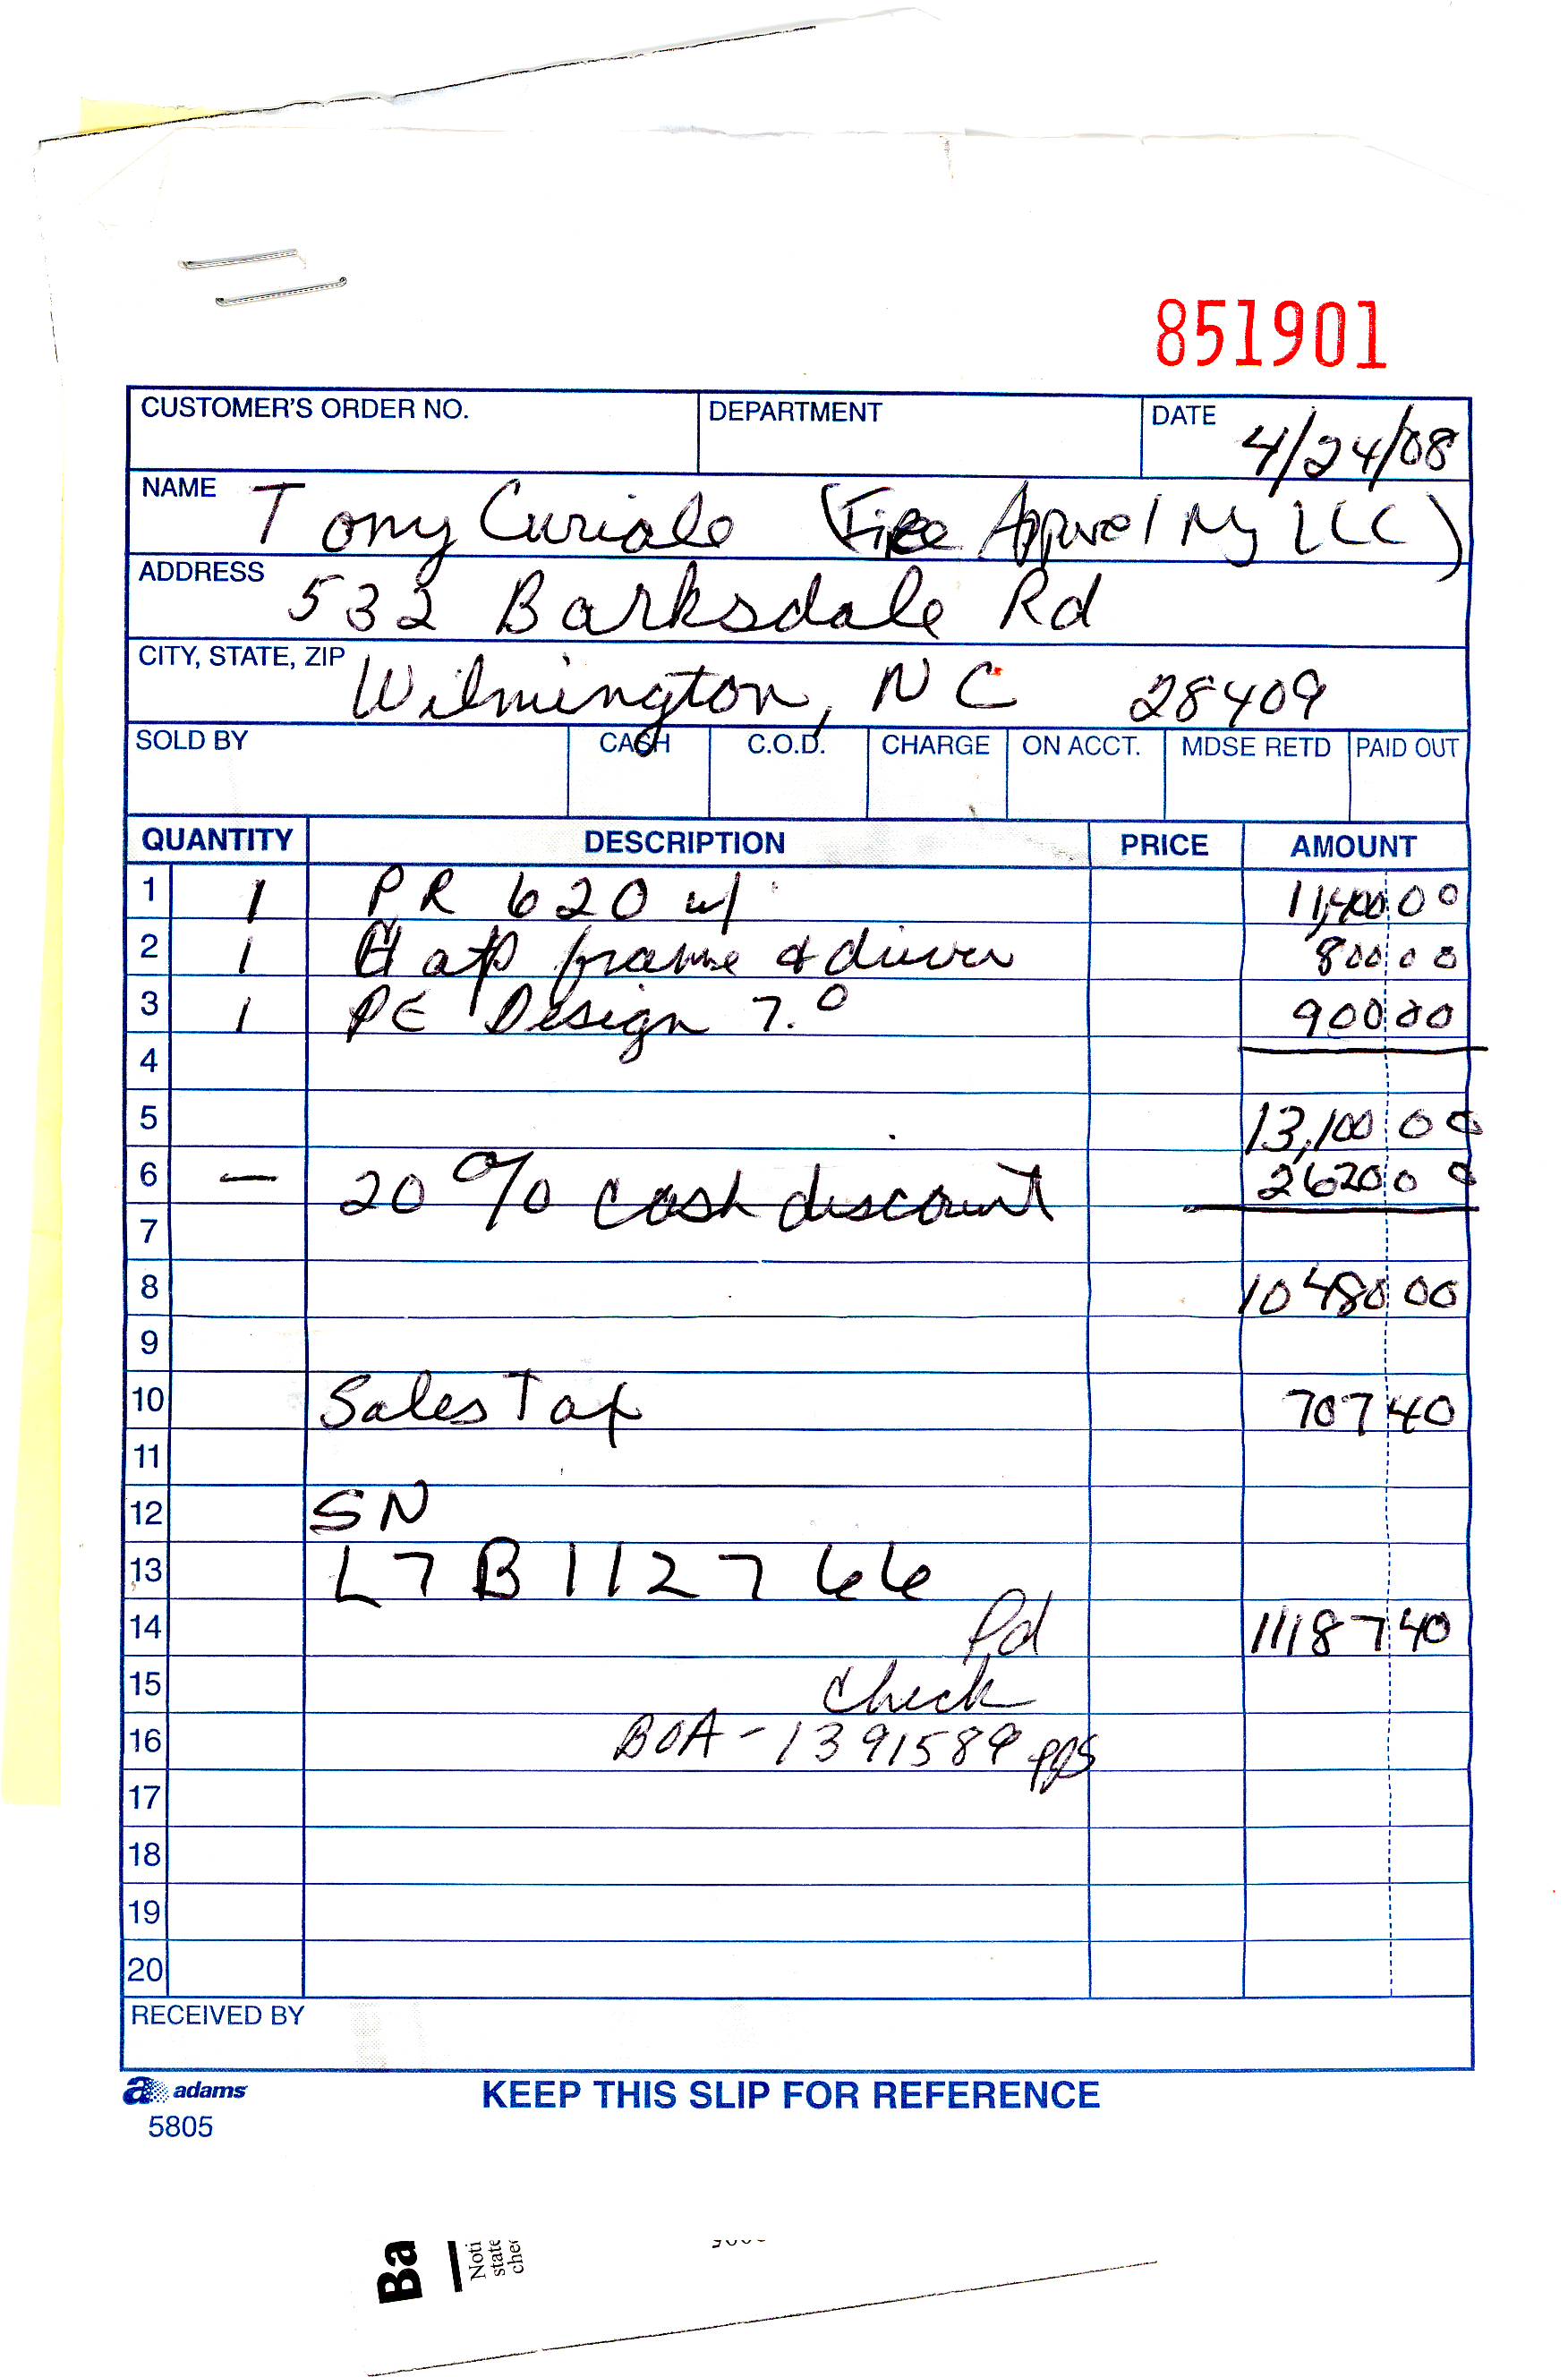 851901
CUSTOMER'S ORDER NO. DEPARTMENT DATE 4/24/08
NAME Tony Curiale (Fire Apparel NY LLC)
ADDRESS 532 Barksdale Rd
CITY, STATE, ZIP Wilmington, NC 28409
SOLD BY CASH C.O.D. CHARGE ON ACCT. MDSE RETD PAID OUT
QUANTITY DESCRIPTION PRICE AMOUNT
1 1 PR 620 w/ 11,400 00
2 1 Hat frame & driver 800 00
3 1 PE Design 7.0 900 00
4
5 13,100 00
6 — 20% cash discount 2620 00
7
8 10480 00
9
10 Sales Tax 707 40
11
12 SN
13 L7B112766
14 Pd 11187 40
15 Check
16 BOA-1391589
17
18
19
20
RECEIVED BY
adams KEEP THIS SLIP FOR REFERENCE
5805
Ba
Noti
state
chec